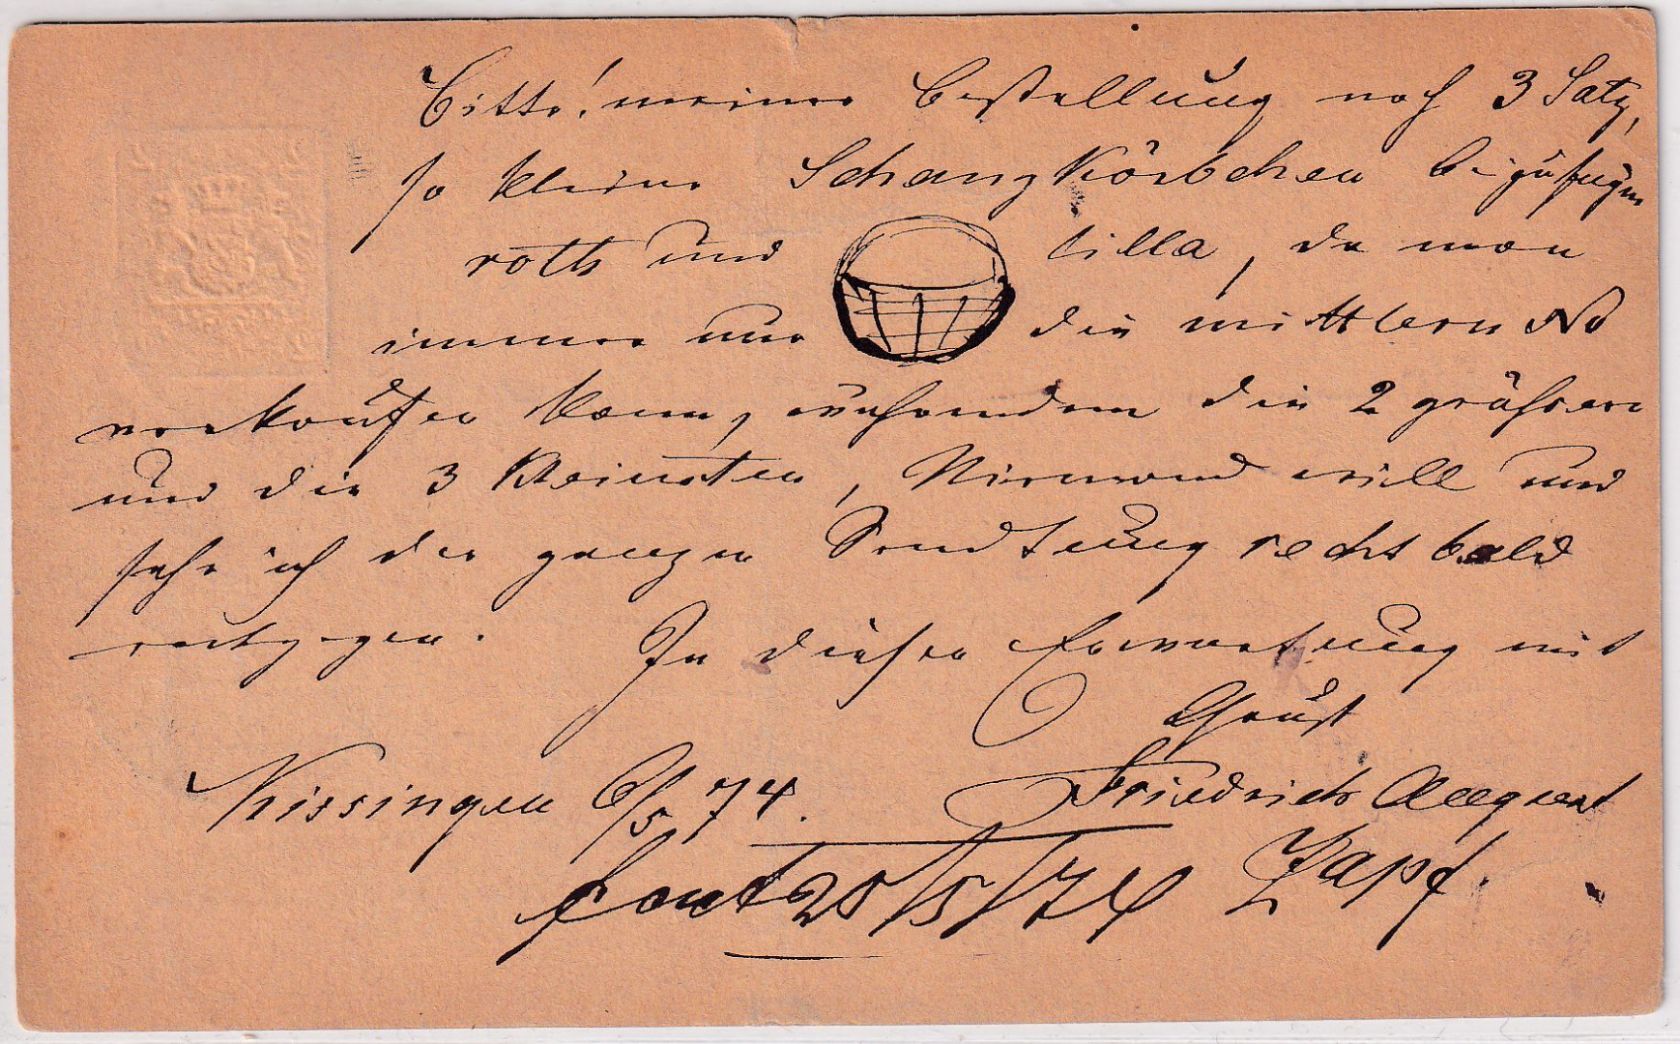 Bitte! meiner Bestellung noch 3 Satz,
so kleine Schanzkörbchen beizufügen
roth und lilla, da man
immer nur die mittlern No
verkaufen kann, die 2 größern
und die 3 kleinsten, Niemand will und
sehe ich der ganzen Sendung recht bald
entgegen. In dieser Erwartung mit
Gruß
Kissingen 6/5 74. Friedrich August
28/5/74 Zapf.